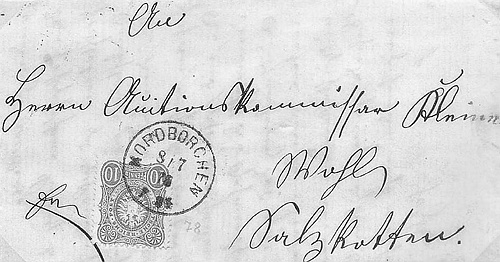 An
Herrn Auctionskommissar Klein
Wohl
Salzkotten.
NORDBORCHEN
8/7
10 10
78